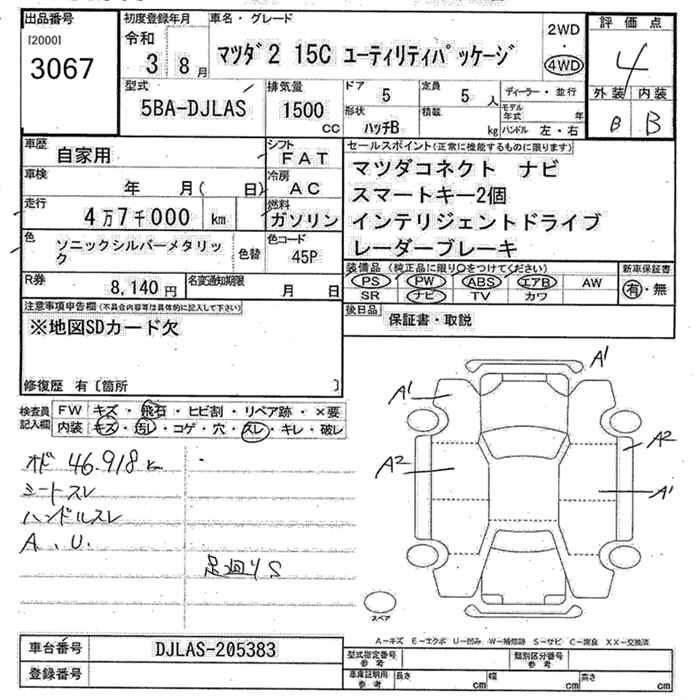 出品番号
[2000]
3067
初度登録年月
令和
3 8月
車名・グレード
マツダ2 15C ユーティリティパッケージ
2WD
・
4WD
評価点
4
外装 内装
B B
型式
5BA-DJLAS
排気量
1500
CC
ドア
5
定員
5 人
形状
ハッチB
積載
kg
ディーラー・並行
モデル年式 年
ハンドル 左・右
車歴
自家用
シフト
FAT
車検
年 月( 日)
冷房
AC
走行
4万7千000 km
燃料
ガソリン
色
ソニックシルバーメタリック
色替
色コード
45P
R券
8,140円
名変通知期限
月 日
セールスポイント(正常に機能するものに限ります)
マツダコネクト ナビ
スマートキー2個
インテリジェントドライブ
レーダーブレーキ
装備品 (純正品に限り○をつけてください)
PS PW ABS エアB AW
SR ナビ TV カワ
新車保証書
有・無
後日品
保証書・取説
注意事項申告欄(不具合内容等は具体的に記入して下さい)
※地図SDカード欠
修復歴 有〔箇所 〕
検査員記入欄
FW キズ・飛石・ヒビ割・リペア跡・×要
内装 キズ・汚レ・コゲ・穴・スレ・キレ・破レ
オド 46.918k
シートスレ
ハンドルスレ
A、U.
足廻りS
A1
A1
A2
A2
A1
スペア
A−キズ E−エクボ U−凹み W−補修跡 S−サビ C−腐食 XX−交換済
車台番号
DJLAS-205383
登録番号
型式指定番号
参考
類別区分番号
参考
車庫証明用
参考
長さ cm
幅 cm
高さ cm